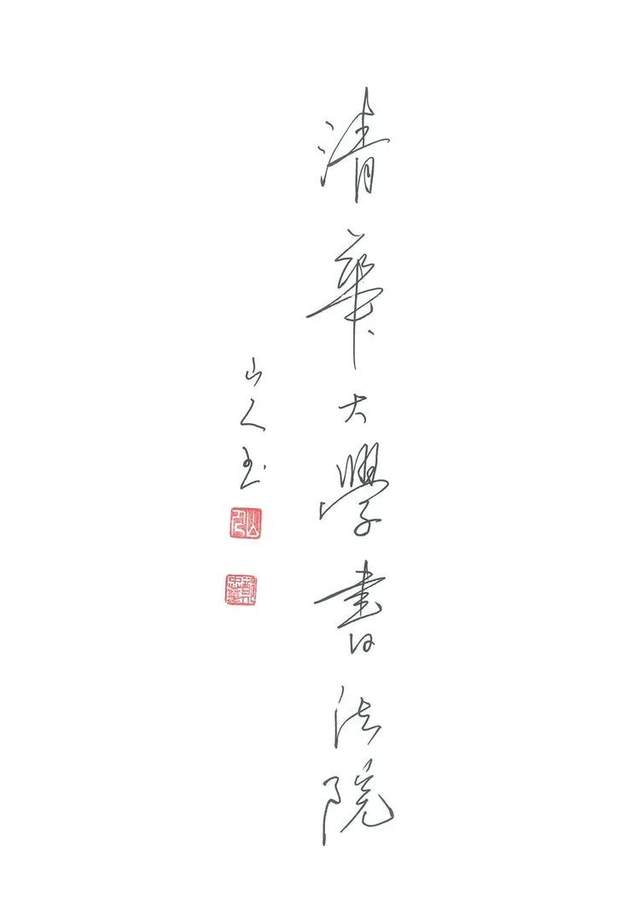 清華大學書法院
山人玉